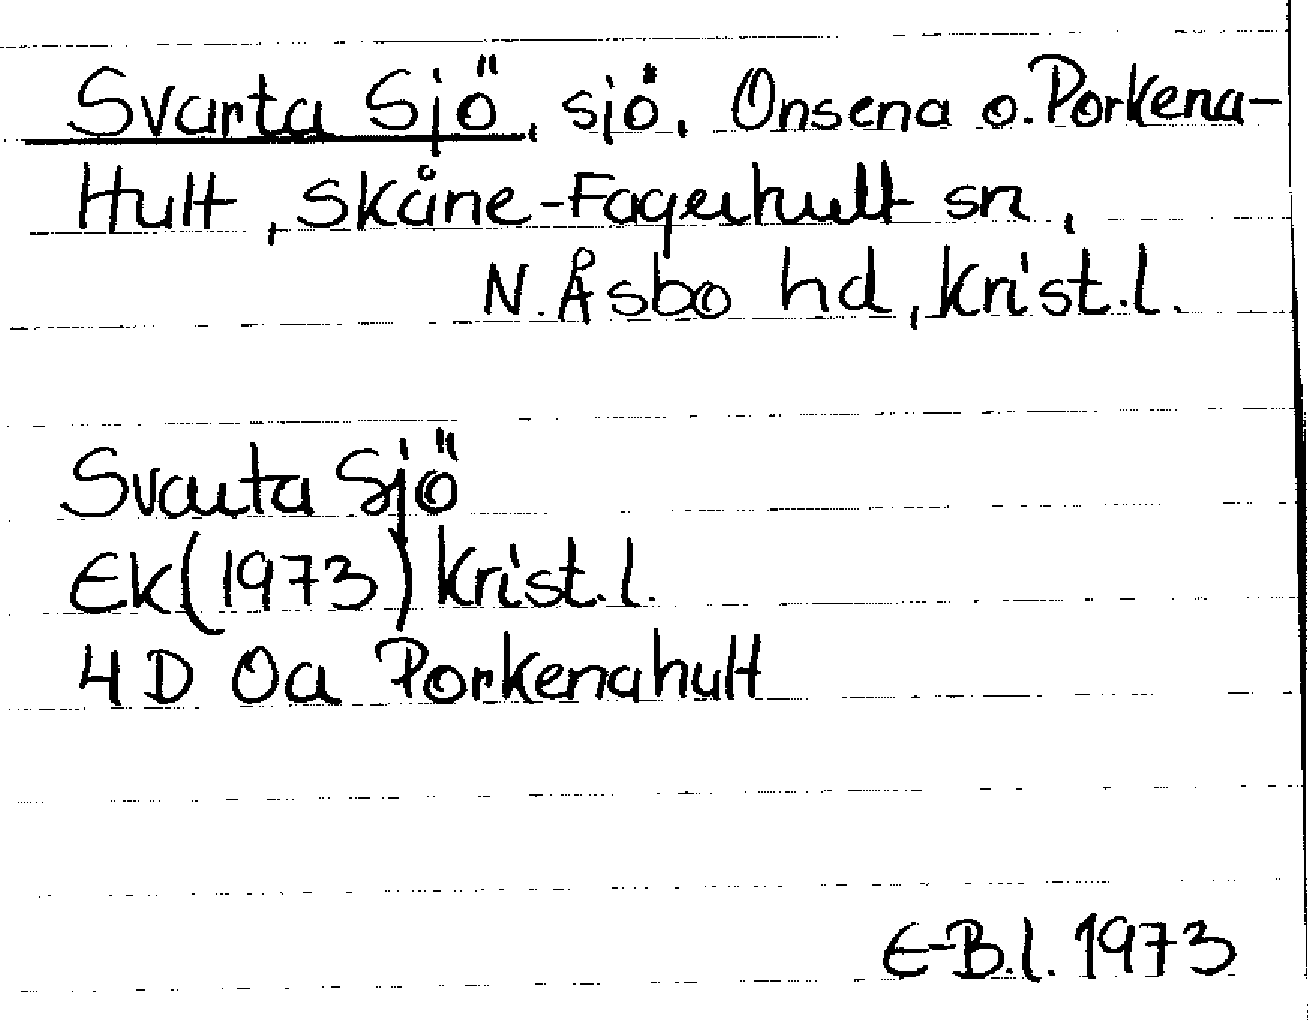 Svarta Sjö, sjö, Onsena o. Porkena-
Hult, Skåne-Fagerhult sn,
N. Åsbo hd, Krist.l.
Svarta Sjö
EK(1973) Krist.l.
4D 0a Porkenahult
E-B.l. 1973